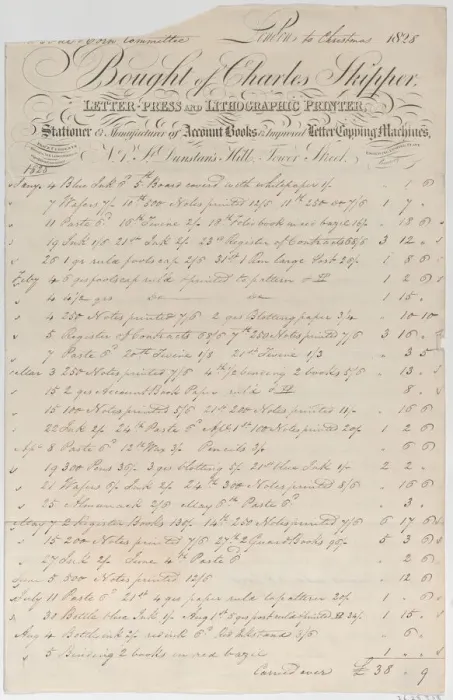 Corn Committee London to Christmas 1828
Bought of Charles Skipper,
LETTER-PRESS AND LITHOGRAPHIC PRINTER,
Stationer & Manufacturer of Account Books & Improved Letter Copying Machines,
No. 1, St. Dunstan's Hill, Tower Street.
1828
Jany 4 Blue Ink 6d 5th Board cover'd with white paper 1/- " 1 6
7 Wafers 7/- 10th 500 Notes printed 12/6 11th 250 do 7/6 1 7 "
11 Paste 6d 16th Twine 2/- 18th 16/- " 18 6
19 Ink 1/6 21st Ink 2/- 23rd Register of Contracts 68/6 3 12 "
25 1 qr rule foolscap 2/6 31st large Post 1 8 6
Feby 4 6 qrs foolscap ruld & printed to pattern 1 2 6
4 4/2 qrs do do 1 15 "
4 250 Notes printed 7/6 2 qrs Blotting paper 3/4 " 10 10
5 Register of Contracts 68/6 7th 250 Notes printed 7/6 3 16 "
7 Paste 6d 20th Twine 1/8 21st Twine 1/3 " 3 5
Mar 3 250 Notes printed 7/6 4th 2 books 5/6 " 13 "
15 2 qrs Account Book Paper rul'd " 8 "
15 100 Notes printed 5/6 21st 200 Notes printed 11/- " 16 6
22 Ink 2/- 24th Paste 6d Apl 1st 100 Notes printed 20/- 1 2 6
Apl 8 Paste 6d 12th Wax 3/- Pencils 3/- " 6 6
19 300 Pens 36/- 3 qrs blotting 5/- 21st blue Ink 1/- 2 2 "
21 Wafers 6/- Ink 2/- 24th 300 Notes printed 8/6 " 16 6
25 Almanack 2/6 May 6th Paste 6d " 3 "
May 7 2 Register Books 130/- 14th 250 Notes printed 7/6 6 17 6
15 200 Notes printed 7/6 27th 2 Guard Books 5 3 6
27 Ink 2/- June 4th Paste 6d " 2 6
June 5 500 Notes printed 12/6 " 12 6
July 11 Paste 6d 21st 4 qrs paper ruld to pattern 20/- 1 " 6
30 Bottle blue Ink 1/- Augt 1st 5 qrs post ruld & printed 34/- 1 15 "
Aug 4 Bott Ink 2/- red ink 6d Inkstand 3/6 " 6 "
5 Binding 2 books in red bazil 1 " "
Carried over £ 38 " 9